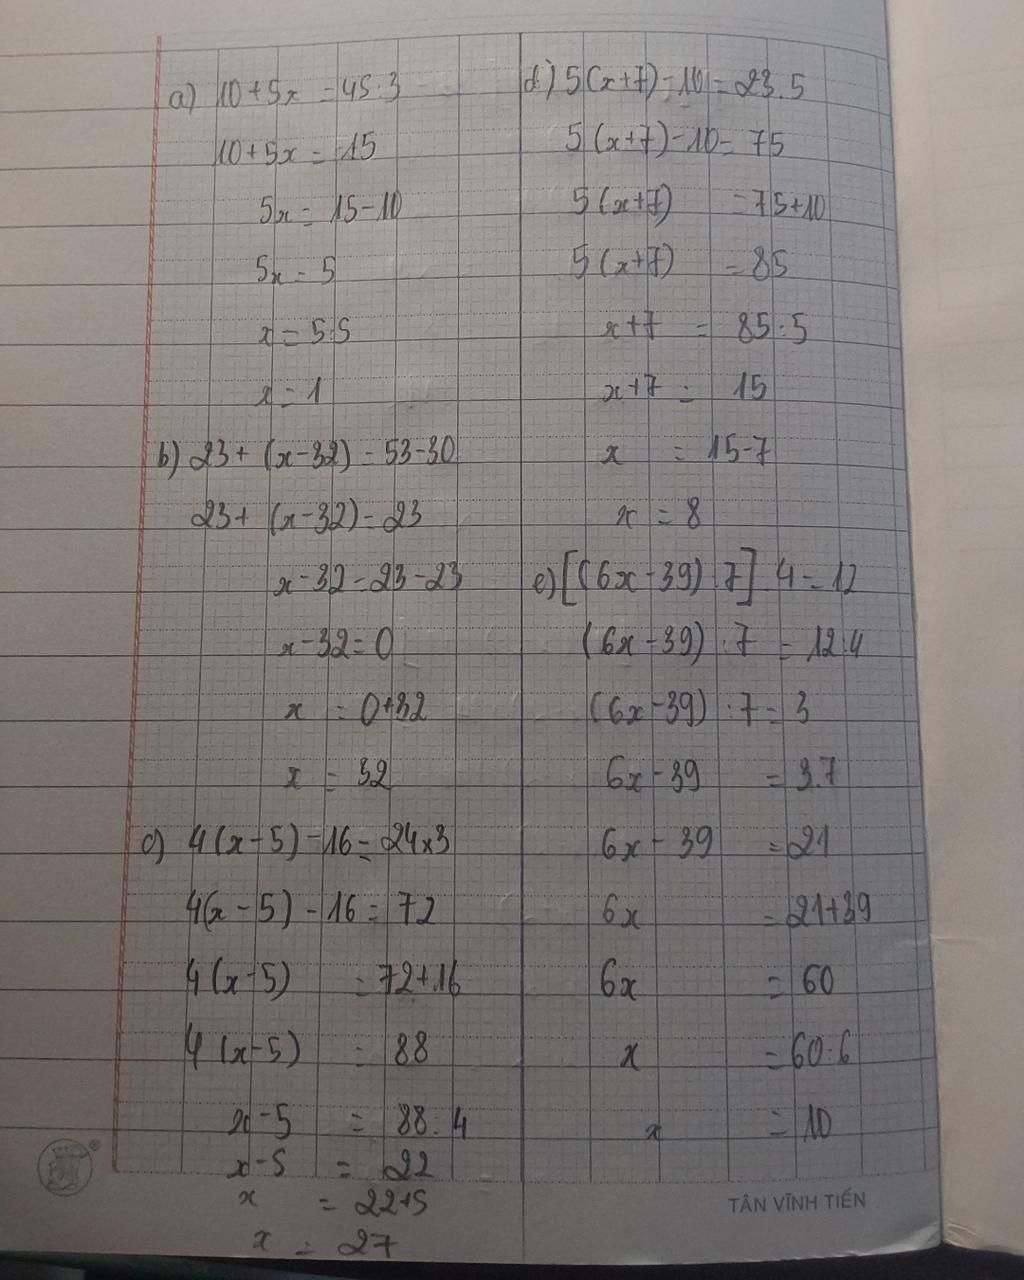 a) 10+5x = 45:3
10+5x = 15
5x = 15-10
5x = 5
x = 5:5
x = 1
b) 23+ (x-32) = 53-30
23+ (x-32) = 23
x-32 = 23-23
x-32 = 0
x = 0+32
x = 32
c) 4(x-5)-16 = 24x3
4(x-5)-16 = 72
4(x-5) = 72+16
4(x-5) = 88
x-5 = 88:4
x-5 = 22
x = 22+5
x = 27
d) 5(x+7)-10 = 23.5
5(x+7)-10 = 75
5(x+7) = 75+10
5(x+7) = 85
x+7 = 85:5
x+7 = 15
x = 15-7
x = 8
e) [(6x-39):7].4 = 12
(6x-39):7 = 12:4
(6x-39):7 = 3
6x-39 = 3.7
6x-39 = 21
6x = 21+39
6x = 60
x = 60:6
x = 10
TÂN VĨNH TIẾN